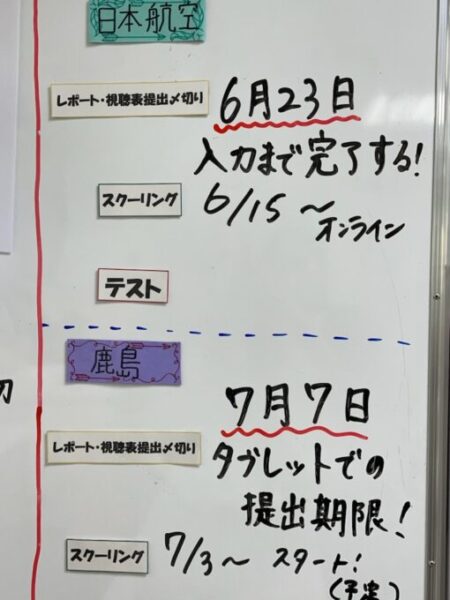 日本航空
レポート・視聴表提出〆切り 6月23日
入力まで完了する!
スクーリング 6/15～
オンライン
テスト
鹿島
7月7日
レポート・視聴表提出〆切り タブレットでの
提出期限!
スクーリング 7/3～ スタート!
(予定)